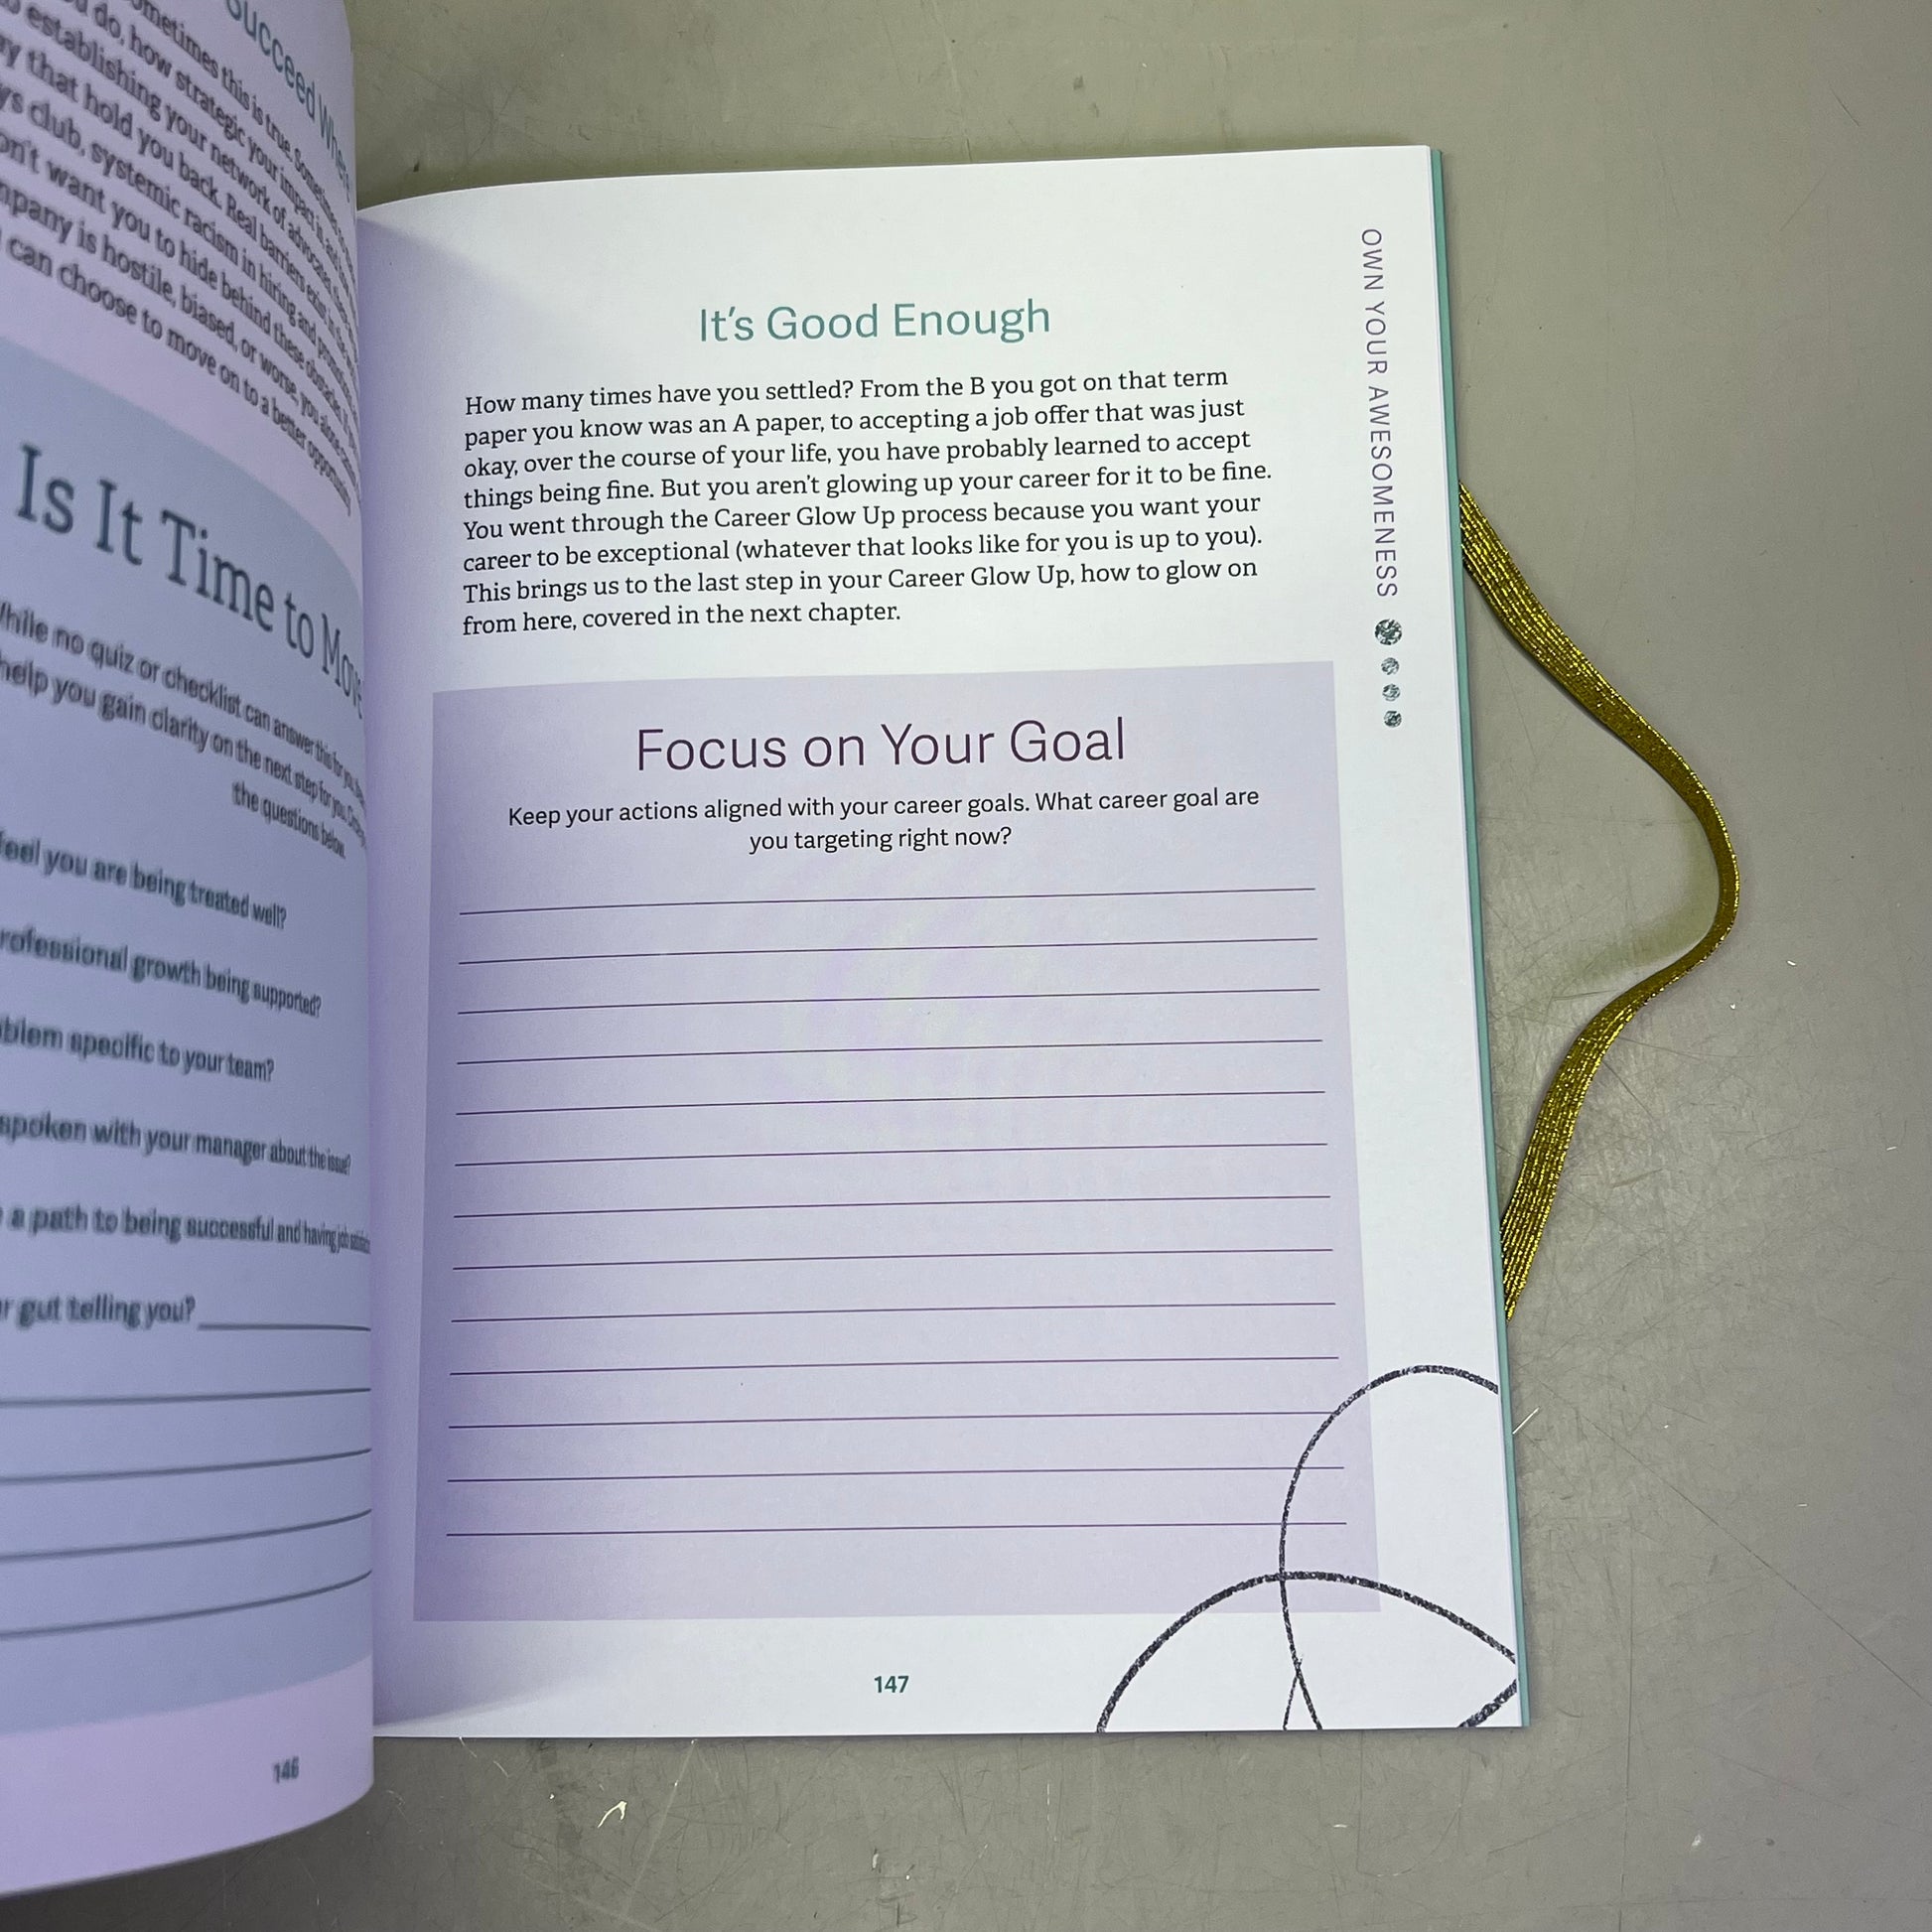 Succeed
ometimes this is true.
do, how strategic your impact is, and
establishing your network of advocates
that hold you back. Real barriers exist in the
club, systemic racism in hiring and
want you to hide behind these obstacles.
is hostile, biased, or worse, you alone
can choose to move on to a better opportunity
Is It Time to Move
While no quiz or checklist can answer this for you,
help you gain clarity on the next step for you.
the questions below.
feel you are being treated well?
rofessional growth being supported?
blem specific to your team?
spoken with your manager about the issue?
a path to being successful and having job
r gut telling you?
146
It's Good Enough
How many times have you settled? From the B you got on that term
paper you know was an A paper, to accepting a job offer that was just
okay, over the course of your life, you have probably learned to accept
things being fine. But you aren't glowing up your career for it to be fine.
You went through the Career Glow Up process because you want your
career to be exceptional (whatever that looks like for you is up to you).
This brings us to the last step in your Career Glow Up, how to glow on
from here, covered in the next chapter.
Focus on Your Goal
Keep your actions aligned with your career goals. What career goal are
you targeting right now?
147
OWN YOUR AWESOMENESS